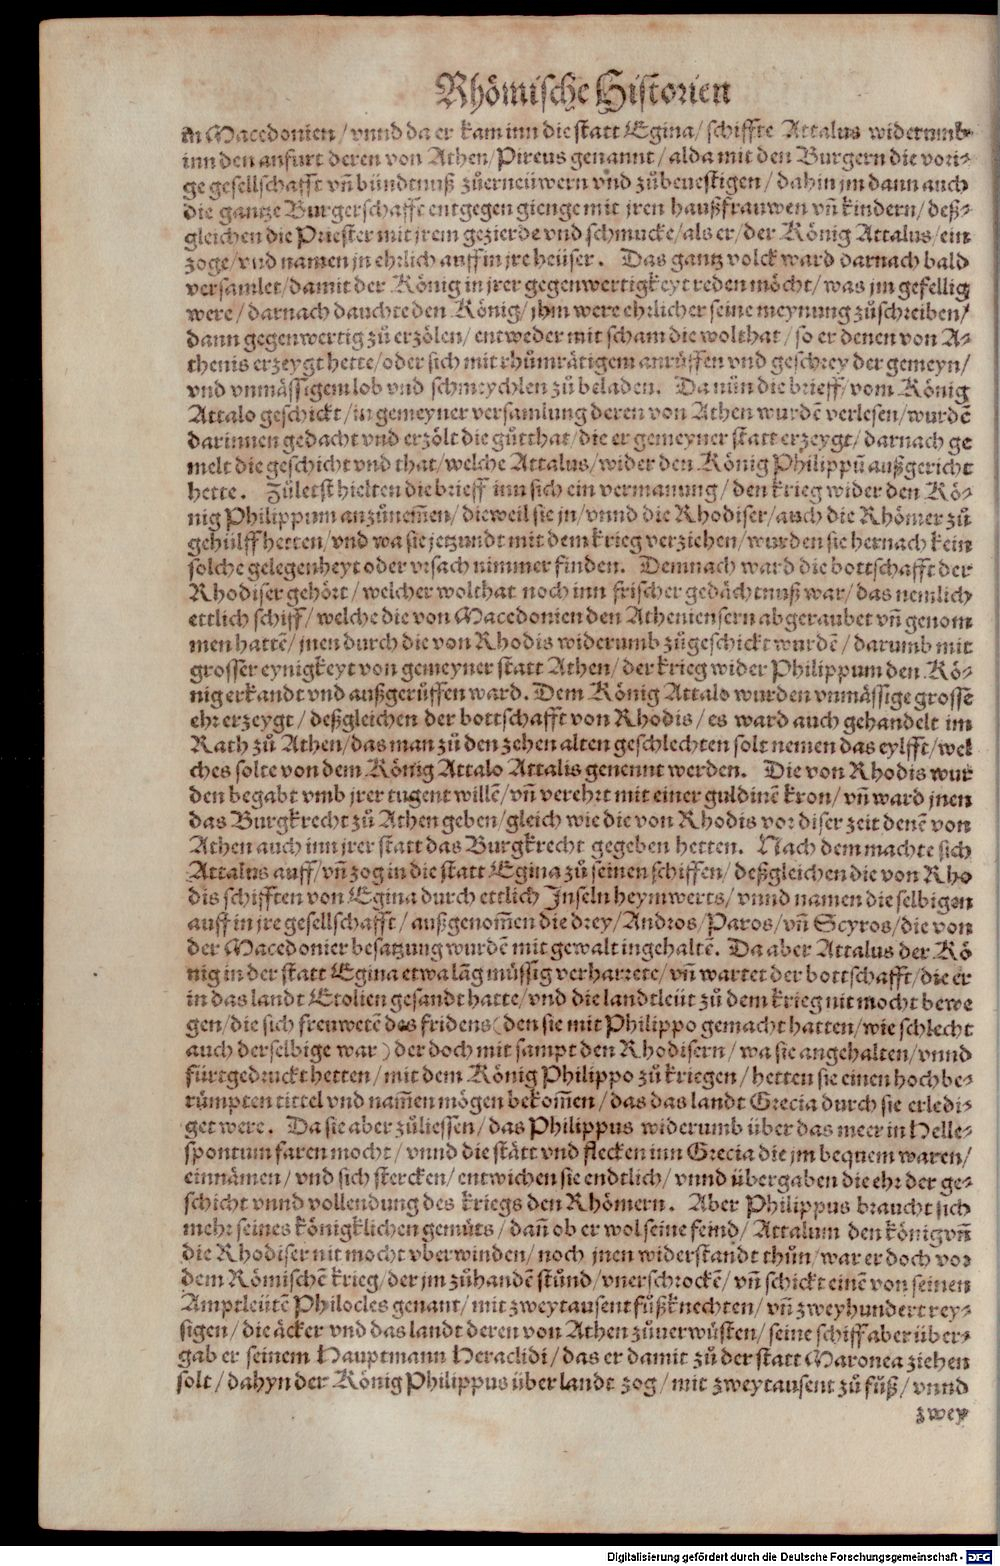 Rhömische Historien
in Macedonien / vnnd da er kam inn die statt Egina / schiffte Attalus widerumb
inn den anfurt deren von Athen / Pireus genannt / alda mit den Burgern die vori⸗
ge gesellschafft vñ bündtnuß zůerneüwern vnd zůbeuestigen / dahin jm dann auch
die gantze Burgerschafft entgegen gienge mit jren haußfrauwen vñ kindern / deß⸗
gleichen die Priester mit jrem gezierde vnd schmucke / als er / der König Attalus / ein
zoge / vnd namen jn ehrlich auff in jre heüser. Das gantz volck ward darnach bald
versamlet / damit der König in jrer gegenwertigkeyt reden möcht / was jm gefellig
were / darnach dauchte den König / jhm were ehrlicher seine meynung zůschreiben /
dann gegenwertig zů erzölen / entweder mit scham die wolthat / so er denen von A⸗
thenis erzeygt hette / oder sich mit rhůmrätigem anrüffen vnd geschrey der gemeyn /
vnd vnmässigem lob vnd schmeychlen zů beladen. Da nůn die brieff / vom König
Attalo geschickt / in gemeyner versamlung deren von Athen wurdē verlesen / wurdē
darinnen gedacht vnd erzölt die gůtthat / die er gemeyner statt erzeygt / darnach ge
melt die geschicht vnd that / welche Attalus / wider den König Philippū außgericht
hette. Zůletst hielten die brieff inn sich ein vermanung / den krieg wider den Kö⸗
nig Philippum anzůnem̄en / dieweil sie jn / vnnd die Rhodiser / auch die Rhömer zů
gehülff hetten / vnd wa sie jetzundt mit dem krieg verziehen / wurden sie hernach kein
solche gelegenheyt oder vrsach nimmer finden. Demnach ward die bottschafft der
Rhodiser gehört / welcher wolthat noch inn frischer gedächtnuß war / das nemlich
ettlich schiff / welche die von Macedonien den Atheniensern abgeraubet vñ genom
men hattē / jnen durch die von Rhodis widerumb zůgeschickt wurdē / darumb mit
grosser eynigkeyt von gemeyner statt Athen / der krieg wider Philippum den Kö⸗
nig erkandt vnd außgerüffen ward. Dem König Attalo wurden vnmässige grosse
ehr erzeygt / deßgleichen der bottschafft von Rhodis / es ward auch gehandelt im
Rath zů Athen / das man zů den zehen alten geschlechten solt nemen das eylfft / wel
ches solte von dem König Attalo Attalis genennt werden. Die von Rhodis wur
den begabt vmb jrer tugent willē / vñ verehrt mit einer guldinē kron / vñ ward jnen
das Burgkrecht zů Athen geben / gleich wie die von Rhodis vor diser zeit denē von
Athen auch inn jrer statt das Burgkrecht gegeben hetten. Nach dem machte sich
Attalus auff / vñ zog in die statt Egina zů seinen schiffen / deßgleichen die von Rho
dis schifften von Egina durch ettlich Inseln heymwerts / vnnd namen die selbigen
auff in jre gesellschafft / außgenom̄en die drey / Andros / Paros / vñ Scyros / die von
der Macedonier besatzung wurdē mit gewalt ingehaltē. Da aber Attalus der Kö
nig in der statt Egina etwa lāg müssig verharrete / vñ wartet der bottschafft / die er
in das landt Etolien gesandt hatte / vnd die landtleüt zů dem krieg nit mocht bewe
gen / die sich freuwetē des fridens (den sie mit Philippo gemacht hatten / wie schlecht
auch derselbige war) der doch mit sampt den Rhodisern / wa sie angehalten / vnnd
fürtgedruckt hetten / mit dem König Philippo zů kriegen / hetten sie einen hochbe⸗
rümpten tittel vnd nam̄en mögen bekom̄en / das das landt Grecia durch sie erledi⸗
get were. Da sie aber zůliessen / das Philippus widerumb über das meer in Helle⸗
spontum faren mocht / vnnd die stätt vnd flecken inn Grecia die jm bequem waren /
einnämen / vnd sich stercken / entwichen sie endtlich / vnnd übergaben die ehr der ge⸗
schicht vnnd vollendung des kriegs den Rhömern. Aber Philippus braucht sich
mehr seines königklichen gemüts / dañ ob er wol seine feind / Attalum den könig vñ
die Rhodiser nit mocht vberwinden / noch jnen widerstandt thůn / war er doch vor
dem Römischē krieg / der jm zůhandē stůnd / vnerschrockē / vñ schickt einē von seinen
Amptleütē Philocles genant / mit zweytausent fůßknechten / vñ zweyhundert rey⸗
sigen / die äcker vnd das landt deren von Athen zůuerwüsten / seine schiff aber über⸗
gab er seinem Hauptmann Heraclidi / das er damit zů der statt Maronea ziehen
solt / dahyn der König Philippus über landt zog / mit zweytausent zů fůß / vnnd
zwey
Digitalisierung gefördert durch die Deutsche Forschungsgemeinschaft - DFG